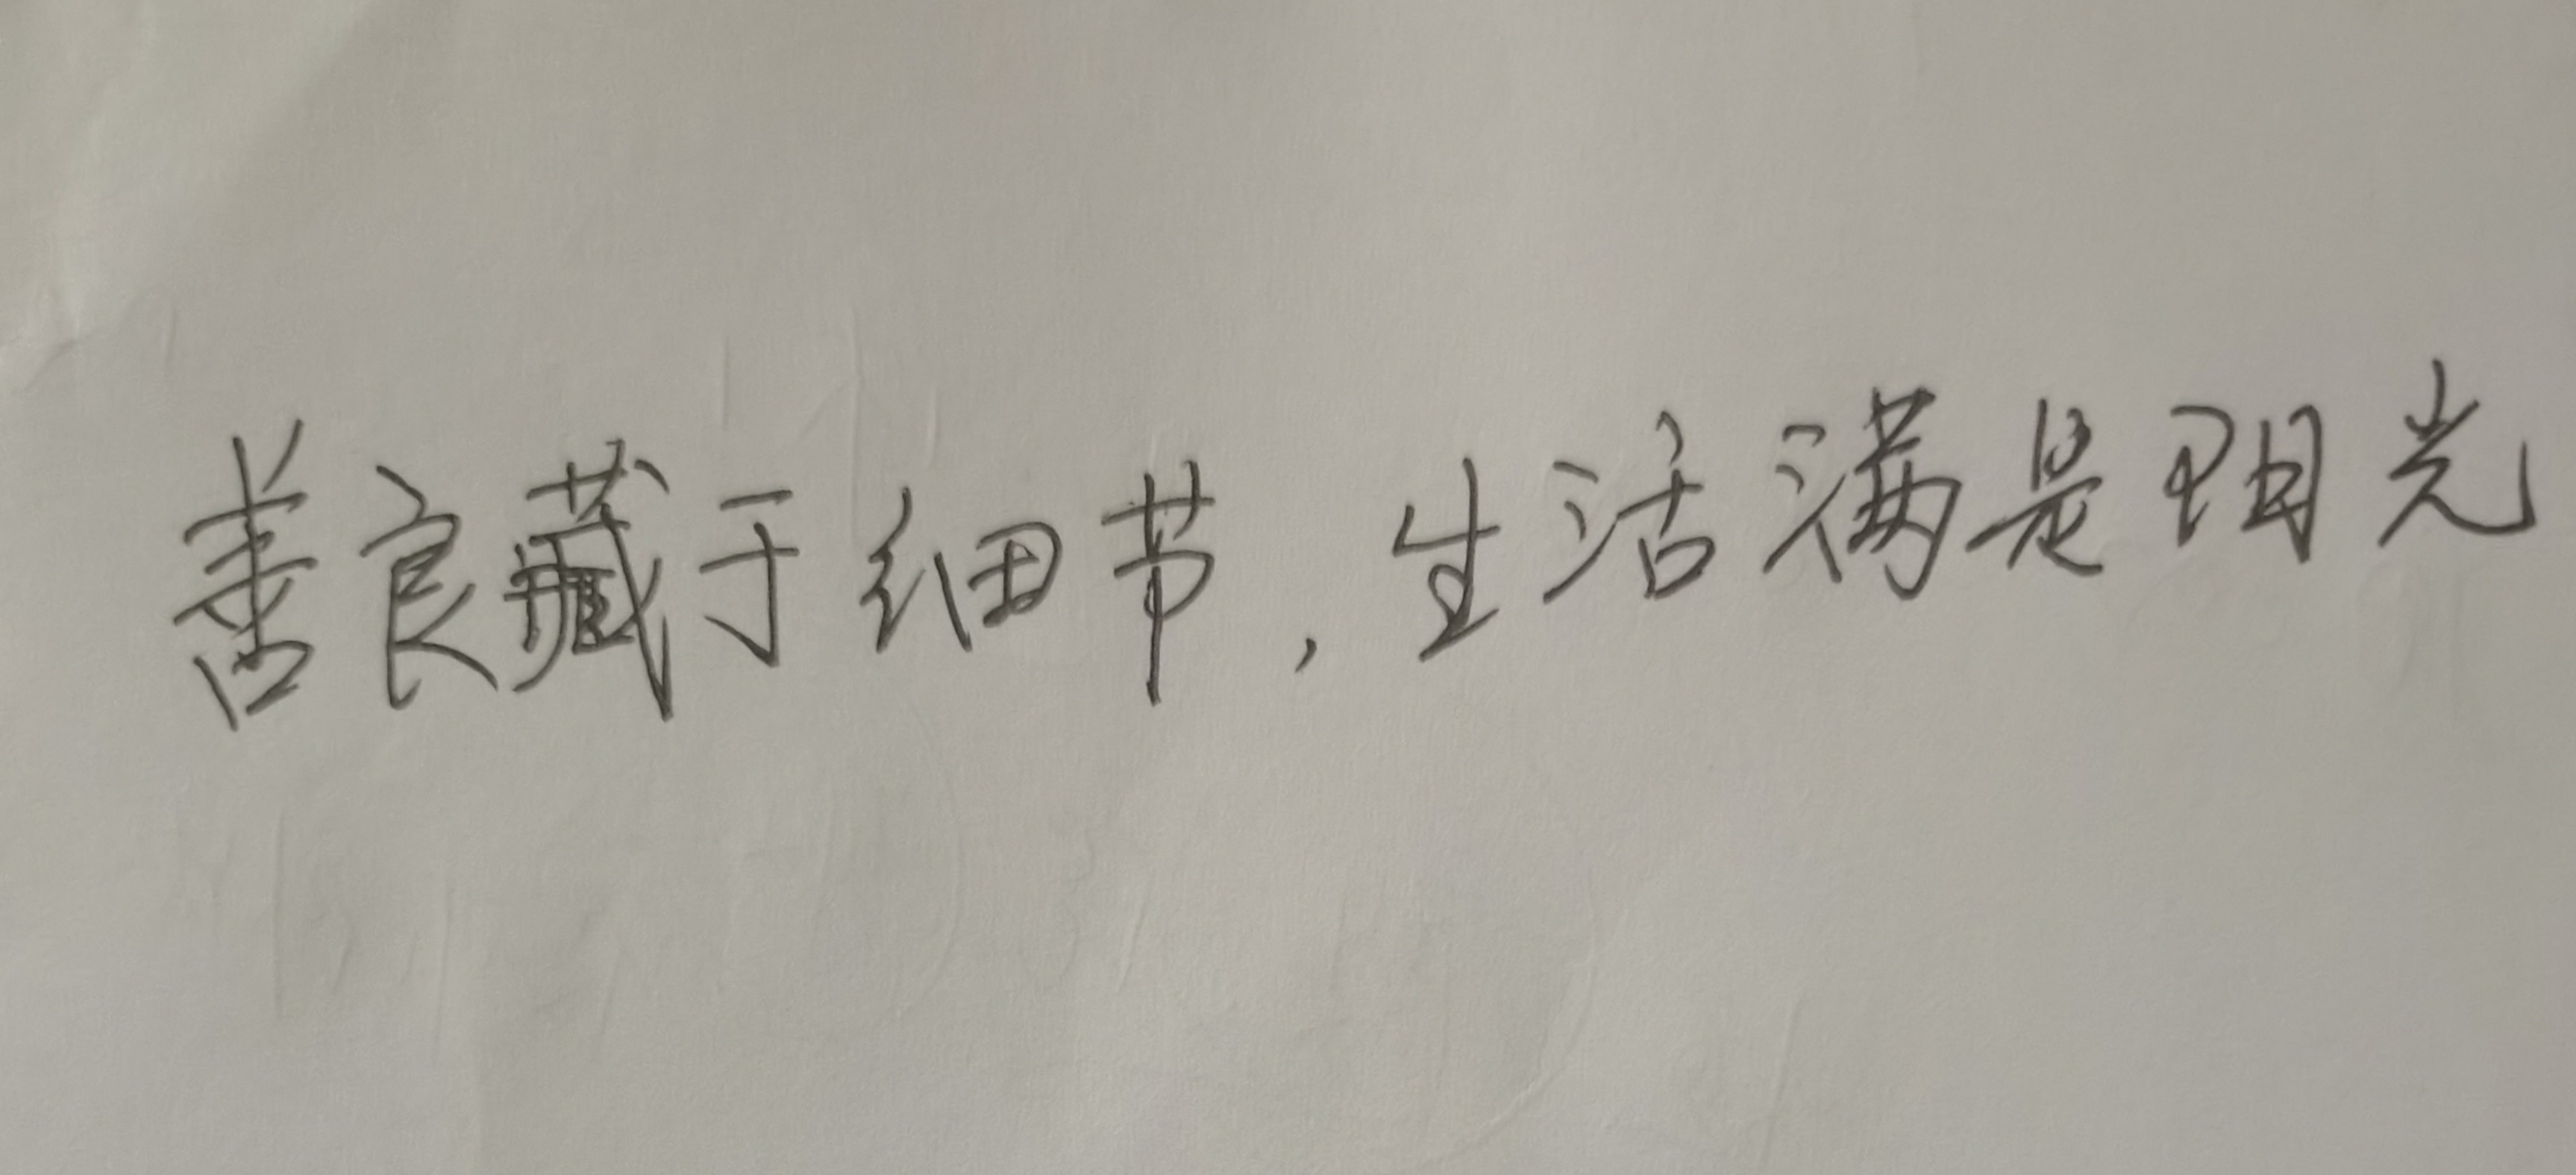 善良藏于细节，生活满是阳光